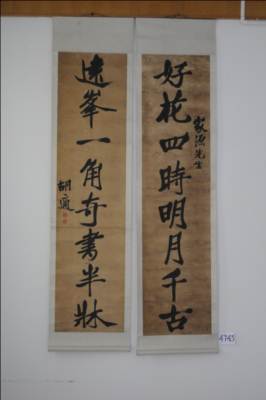 好花四時明月千古
家源先生
遠峯一角奇書半牀
胡適
4745